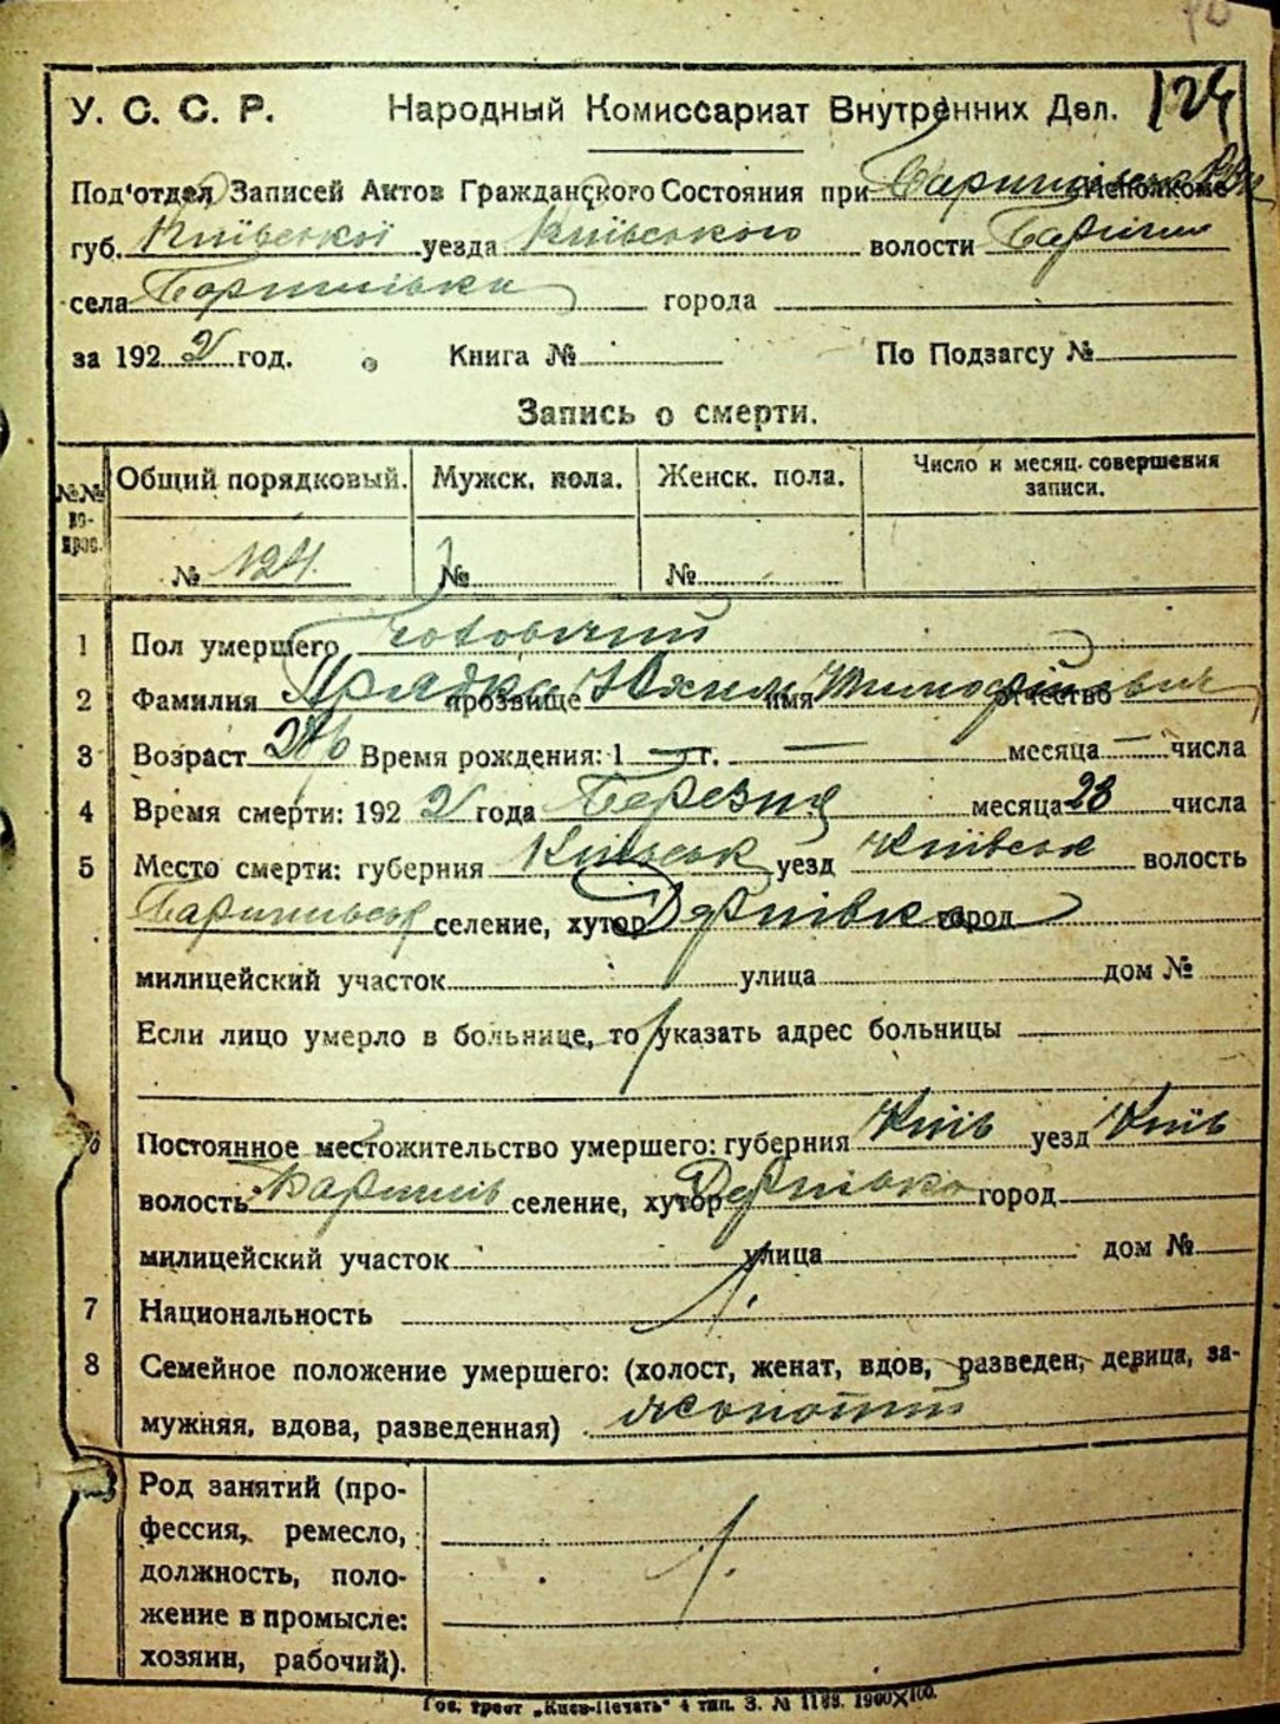 124
У. С. С. Р. Народный Комиссариат Внутренних Дел.
Под'отдел Записей Актов Гражданского Состояния при Исполкоме
губ. Київської уезда Київського волости
села города
за 1922 год. Книга № По Подзагсу №
Запись о смерти.
№№ вопрос. Общий порядковый. Мужск. пола. Женск. пола. Число и месяц. совершения записи.
№ 124. № №
1 Пол умершего чоловічий
2 Фамилия Прядко прозвище Юхим имя Тимофійович отчество
3 Возраст 28 р Время рождения: 1 — г. — месяца — числа
4 Время смерти: 1922 года Березня месяца 23 числа
5 Место смерти: губерния Київськ уезд Київськ волость
селение, хутор Дернівка город
милицейский участок улица дом №
Если лицо умерло в больнице, то указать адрес больницы
Постоянное местожительство умершего: губерния Київ уезд Київ
волость селение, хутор Дернівка город
милицейский участок улица дом №
7 Национальность
8 Семейное положение умершего: (холост, женат, вдов, разведен, девица, за-
мужняя, вдова, разведенная) жонатий
Род занятий (про-
фессия, ремесло,
должность, поло-
жение в промысле:
хозяин, рабочий).
Гос. трест „Киев-Печать" 4 тип. З. № 1188. 1900X100.